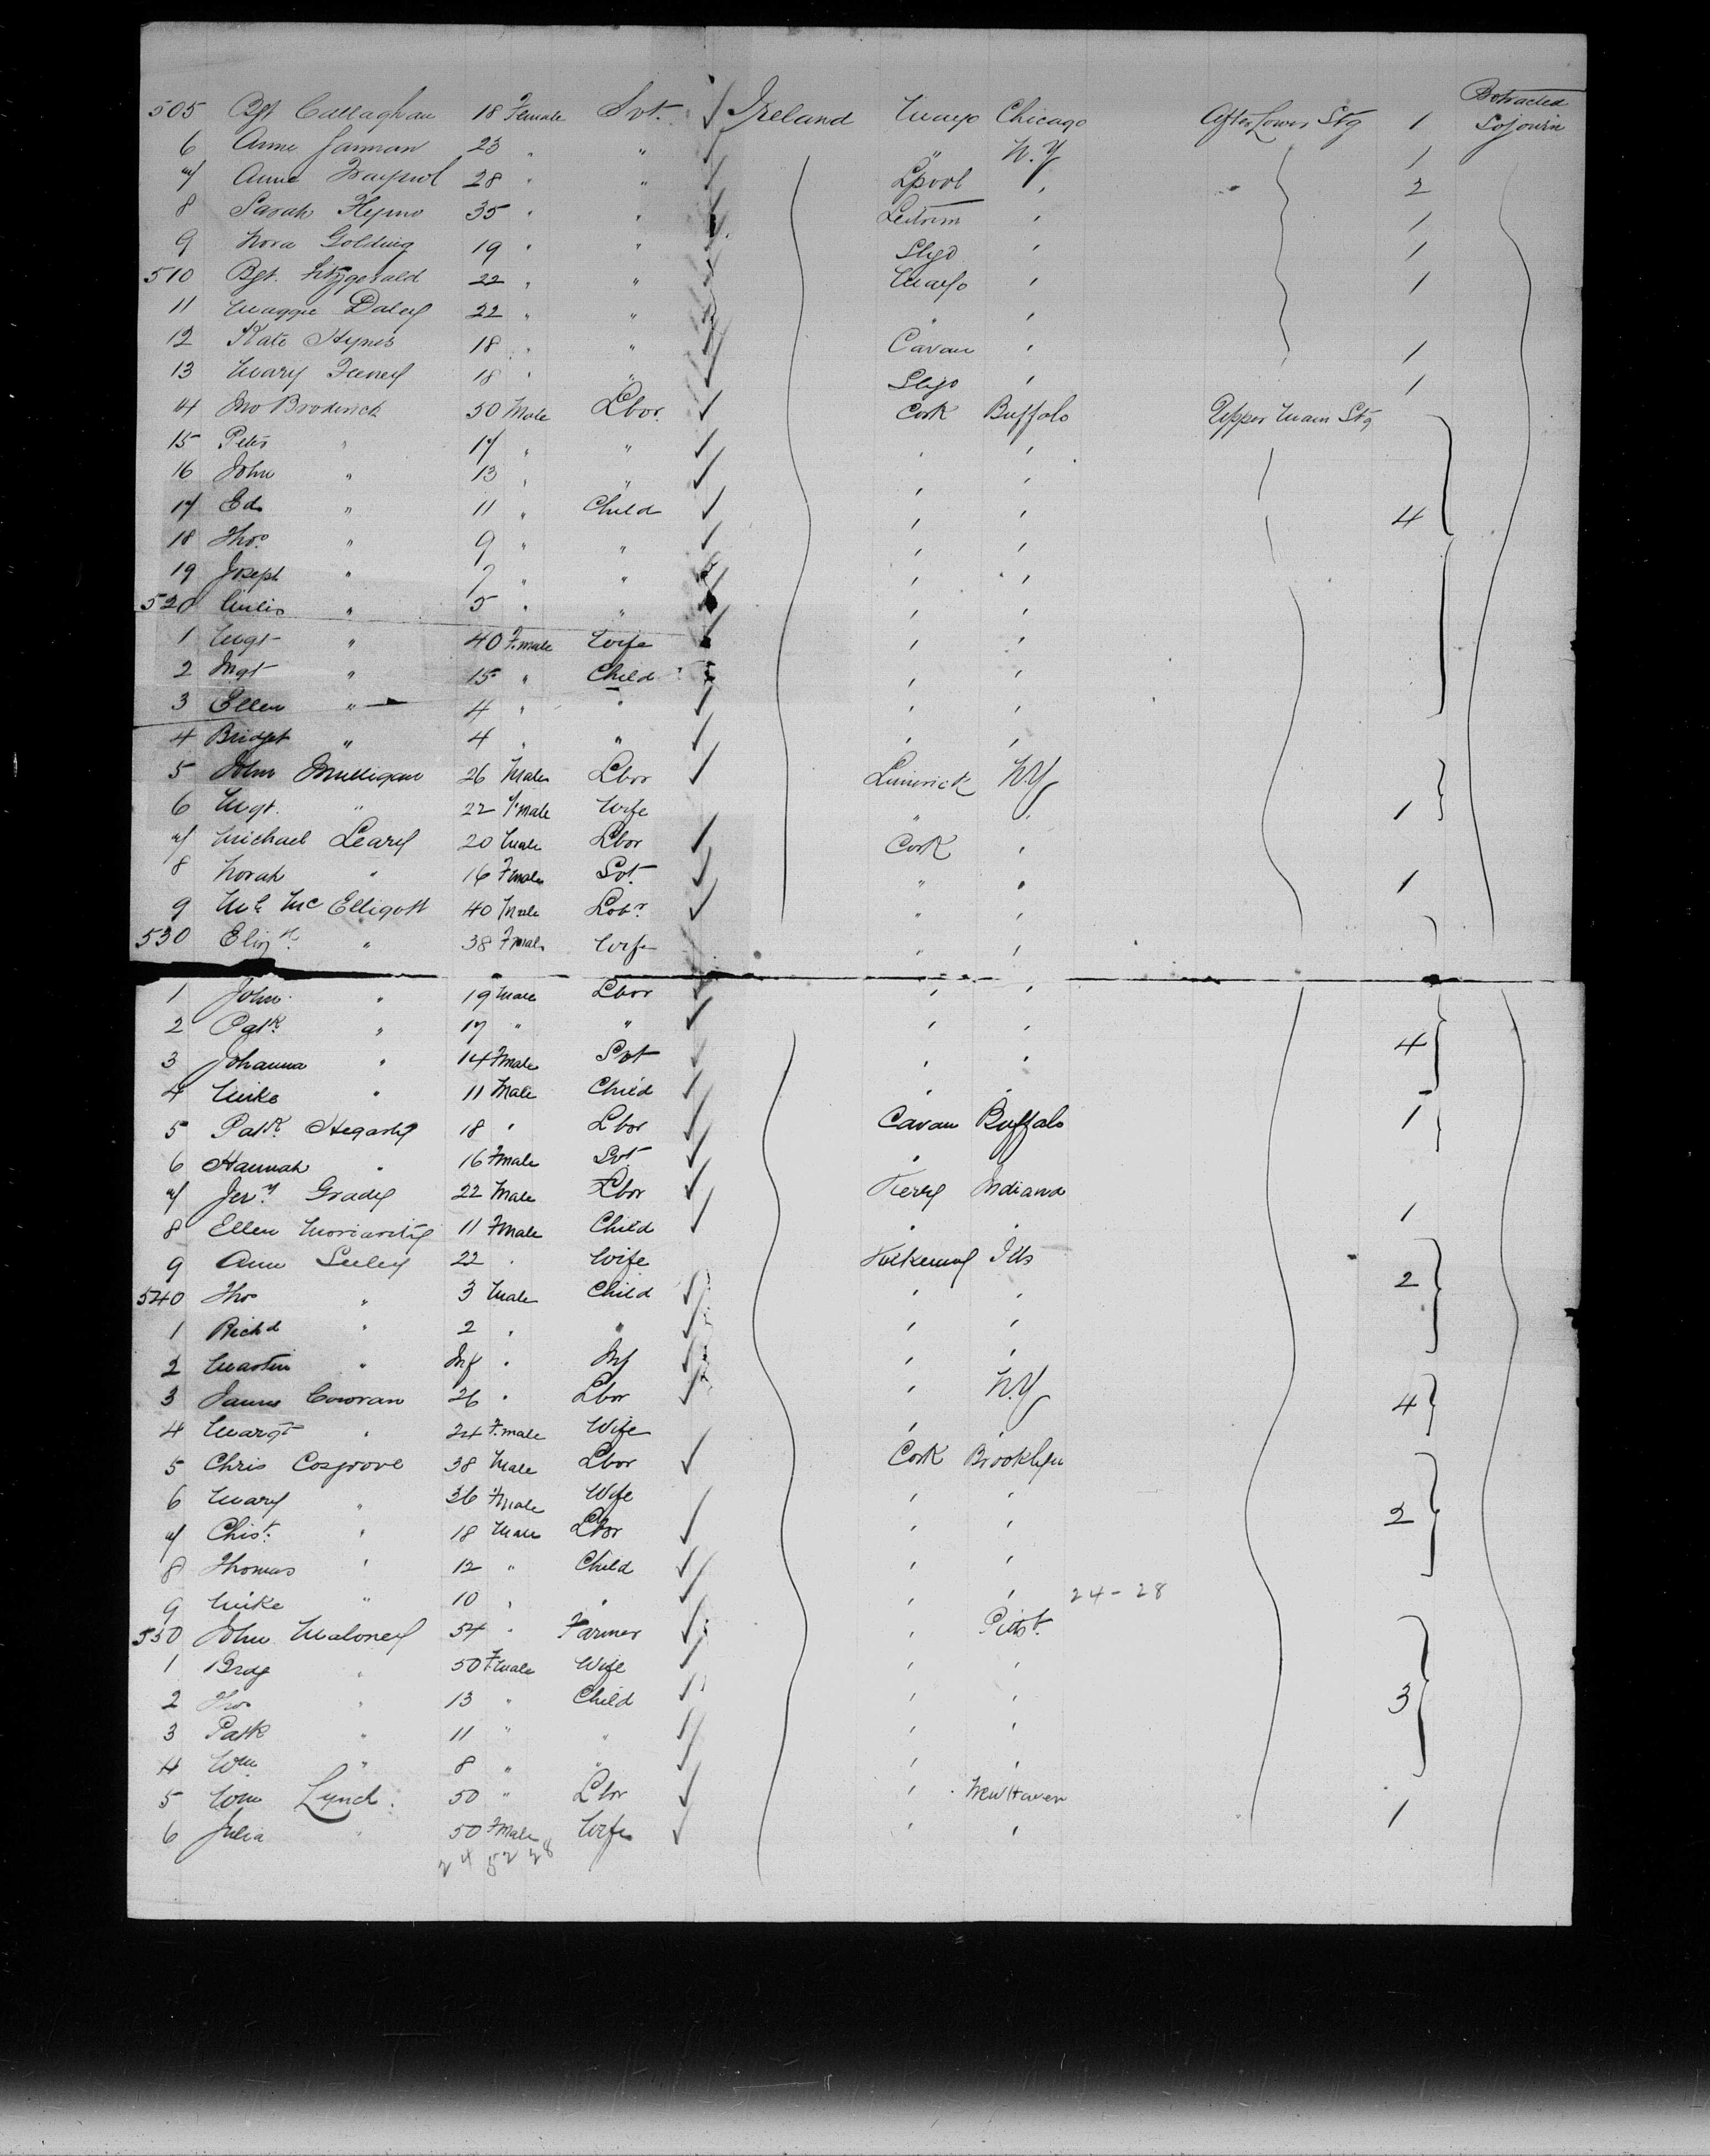 505 Bgt Callaghan 18 Female Svt. Ireland Mayo Chicago After Lower Stg 1 Protracted Sojourn
6 Anne 23 " " " N.Y 1
7 Anne 28 " " Lpool " 2
8 Sarah 35 " " Leitrim " 1
9 Nora Golding 19 " " Sligo " 1
510 Bgt. Fitzgerald 22 " " Mayo " 1
11 Maggie Daley 22 " " " "
12 Kate Hynes 18 " " Cavan " 1
13 Mary Feeney 18 " " Sligo " 1
14 Jno Broderick 50 Male Lbor Cork Buffalo Upper Main Stg
15 Peter " 17 " " " "
16 John " 13 " " " "
17 Ed. " 11 " Child " " 4
18 Thos " 9 " " " "
19 Joseph " 7 " " " "
520 " 5 " " " "
1 Mgt " 40 Fmale Wife " "
2 Mgt " 15 " Child " "
3 Ellen " 4 " " " "
4 Bridget " 4 " " " "
5 John Mulligan 26 Male Lbor Limerick N.Y
6 Mgt. " 22 Fmale Wife " " 1
7 Michael Leary 20 Male Lbor Cork "
8 Norah " 16 Fmale Svt. " " 1
9 Ml Mc Elligott 40 Male Lobr " "
530 Elizth " 38 Fmale Wife " "
1 John " 19 Male Lbor " "
2 Patk " 17 " " " "
3 Johanna " 14 Fmale Svt " " 4
4 Mike " 11 Male Child " "
5 Patk Hegarty 18 " Lbor Cavan Buffalo 1
6 Hannah " 16 Fmale Svt "
7 Jery Grady 22 Male Lbor Kerry Indiana
8 Ellen Moriarity 11 Fmale Child " " 1
9 Ann 22 " Wife Kilkenny Ills
540 Tho " 3 Male Child " " 2
1 Richd " 2 " " " "
2 Martin " Inf " Inf " "
3 James 26 " Lbor " N.Y 4
4 Margt " 24 Fmale Wife " "
5 Chris Cosgrove 38 Male Lbor Cork Brooklyn
6 Mary " 36 Fmale Wife " "
7 Chist. " 18 Male Lbor " " 2
8 Thomas " 12 " Child " "
9 Mike " 10 " " " " 24-28
550 John Maloney 54 " Farmer " Pitts.
1 Brdg " 50 Fmale Wife " "
2 Tho " 13 " Child " " 3
3 Patk " 11 " " " "
4 Wm " 8 " " " "
5 Wm Lynch 50 " Lbr " New Haven
6 Julia " 50 Fmale Wife " " 1
24 52 28